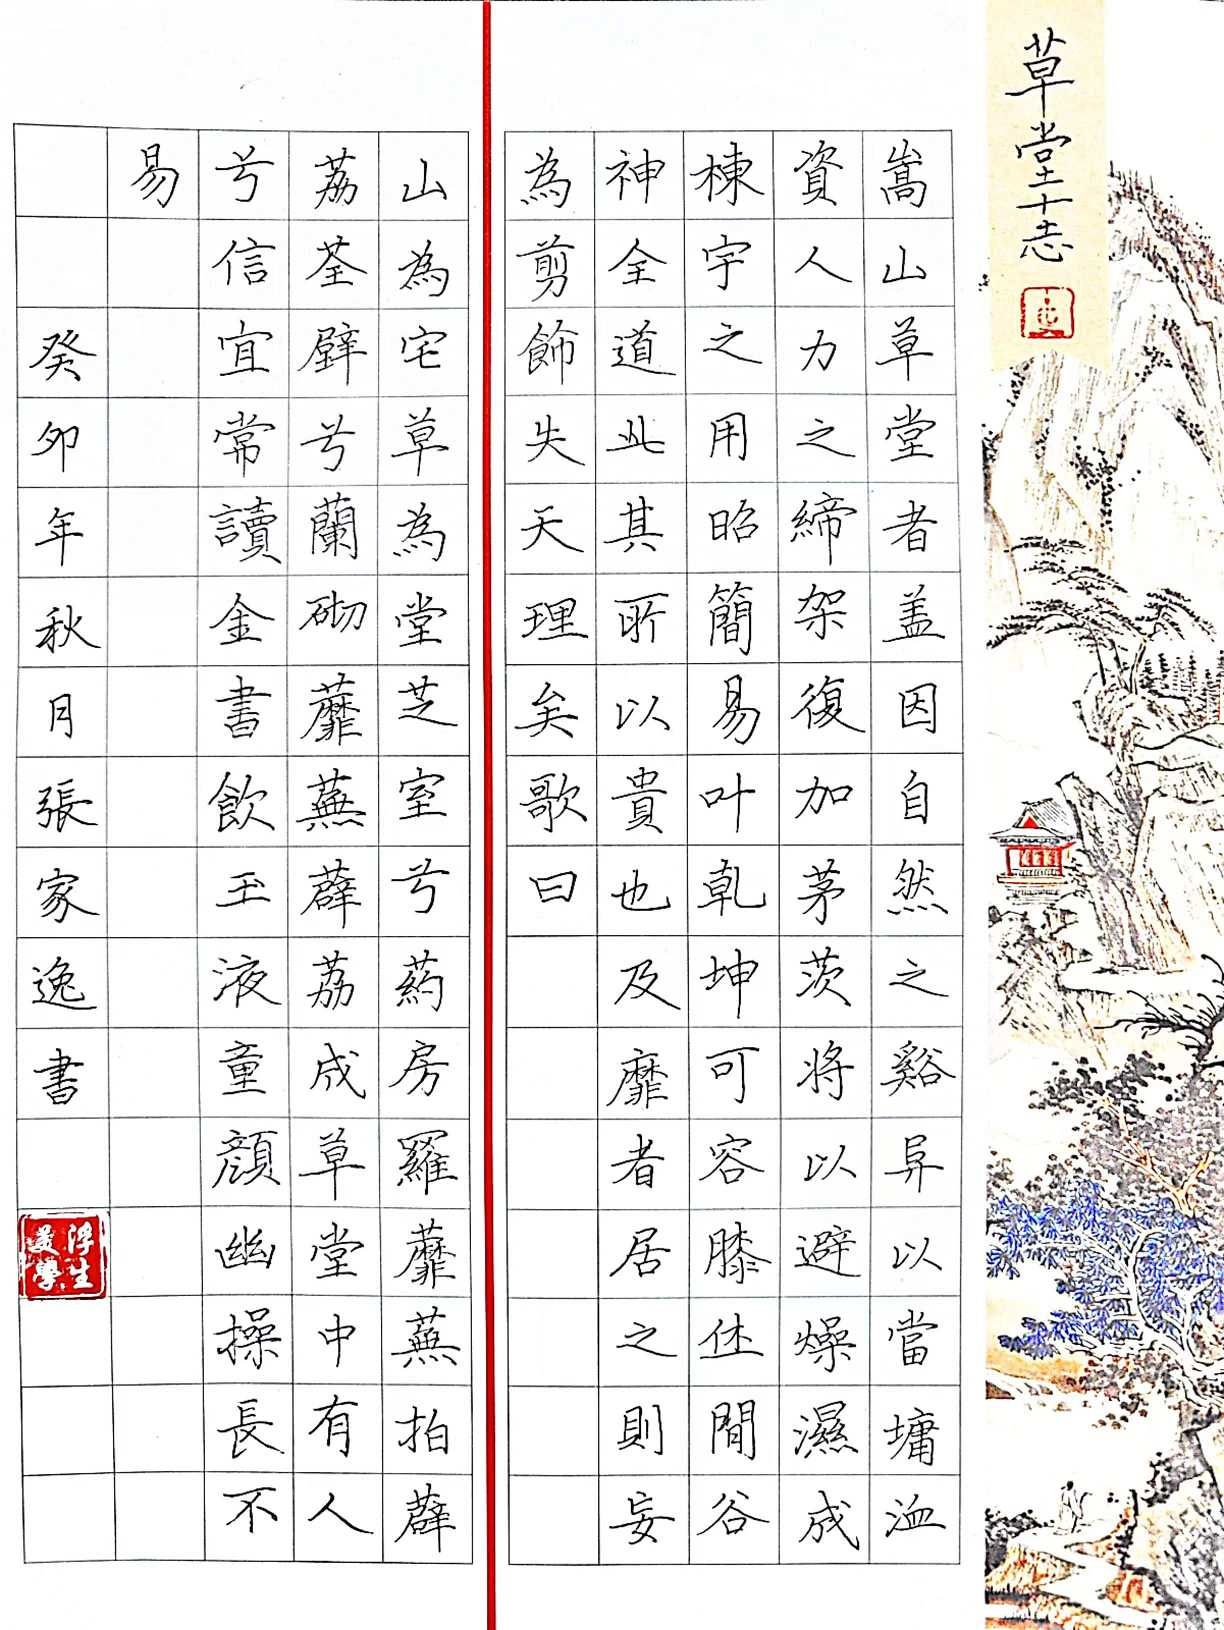 草堂十志
嵩山草堂者盖因自然之谿异以當墉洫
資人力之締架復加茅茨将以避燥濕成
棟宇之用昭簡易叶乾坤可容膝休閒谷
神全道此其所以貴也及靡者居之則妄
為剪飾失天理矣歌曰
山為宅草為堂芝室兮葯房羅蘼蕪拍薜
荔荃壁兮蘭砌蘼蕪薜荔成草堂中有人
兮信宜常讀金書飲玉液童顔幽操長不
易
癸卯年秋月張家逸書
浮生美學